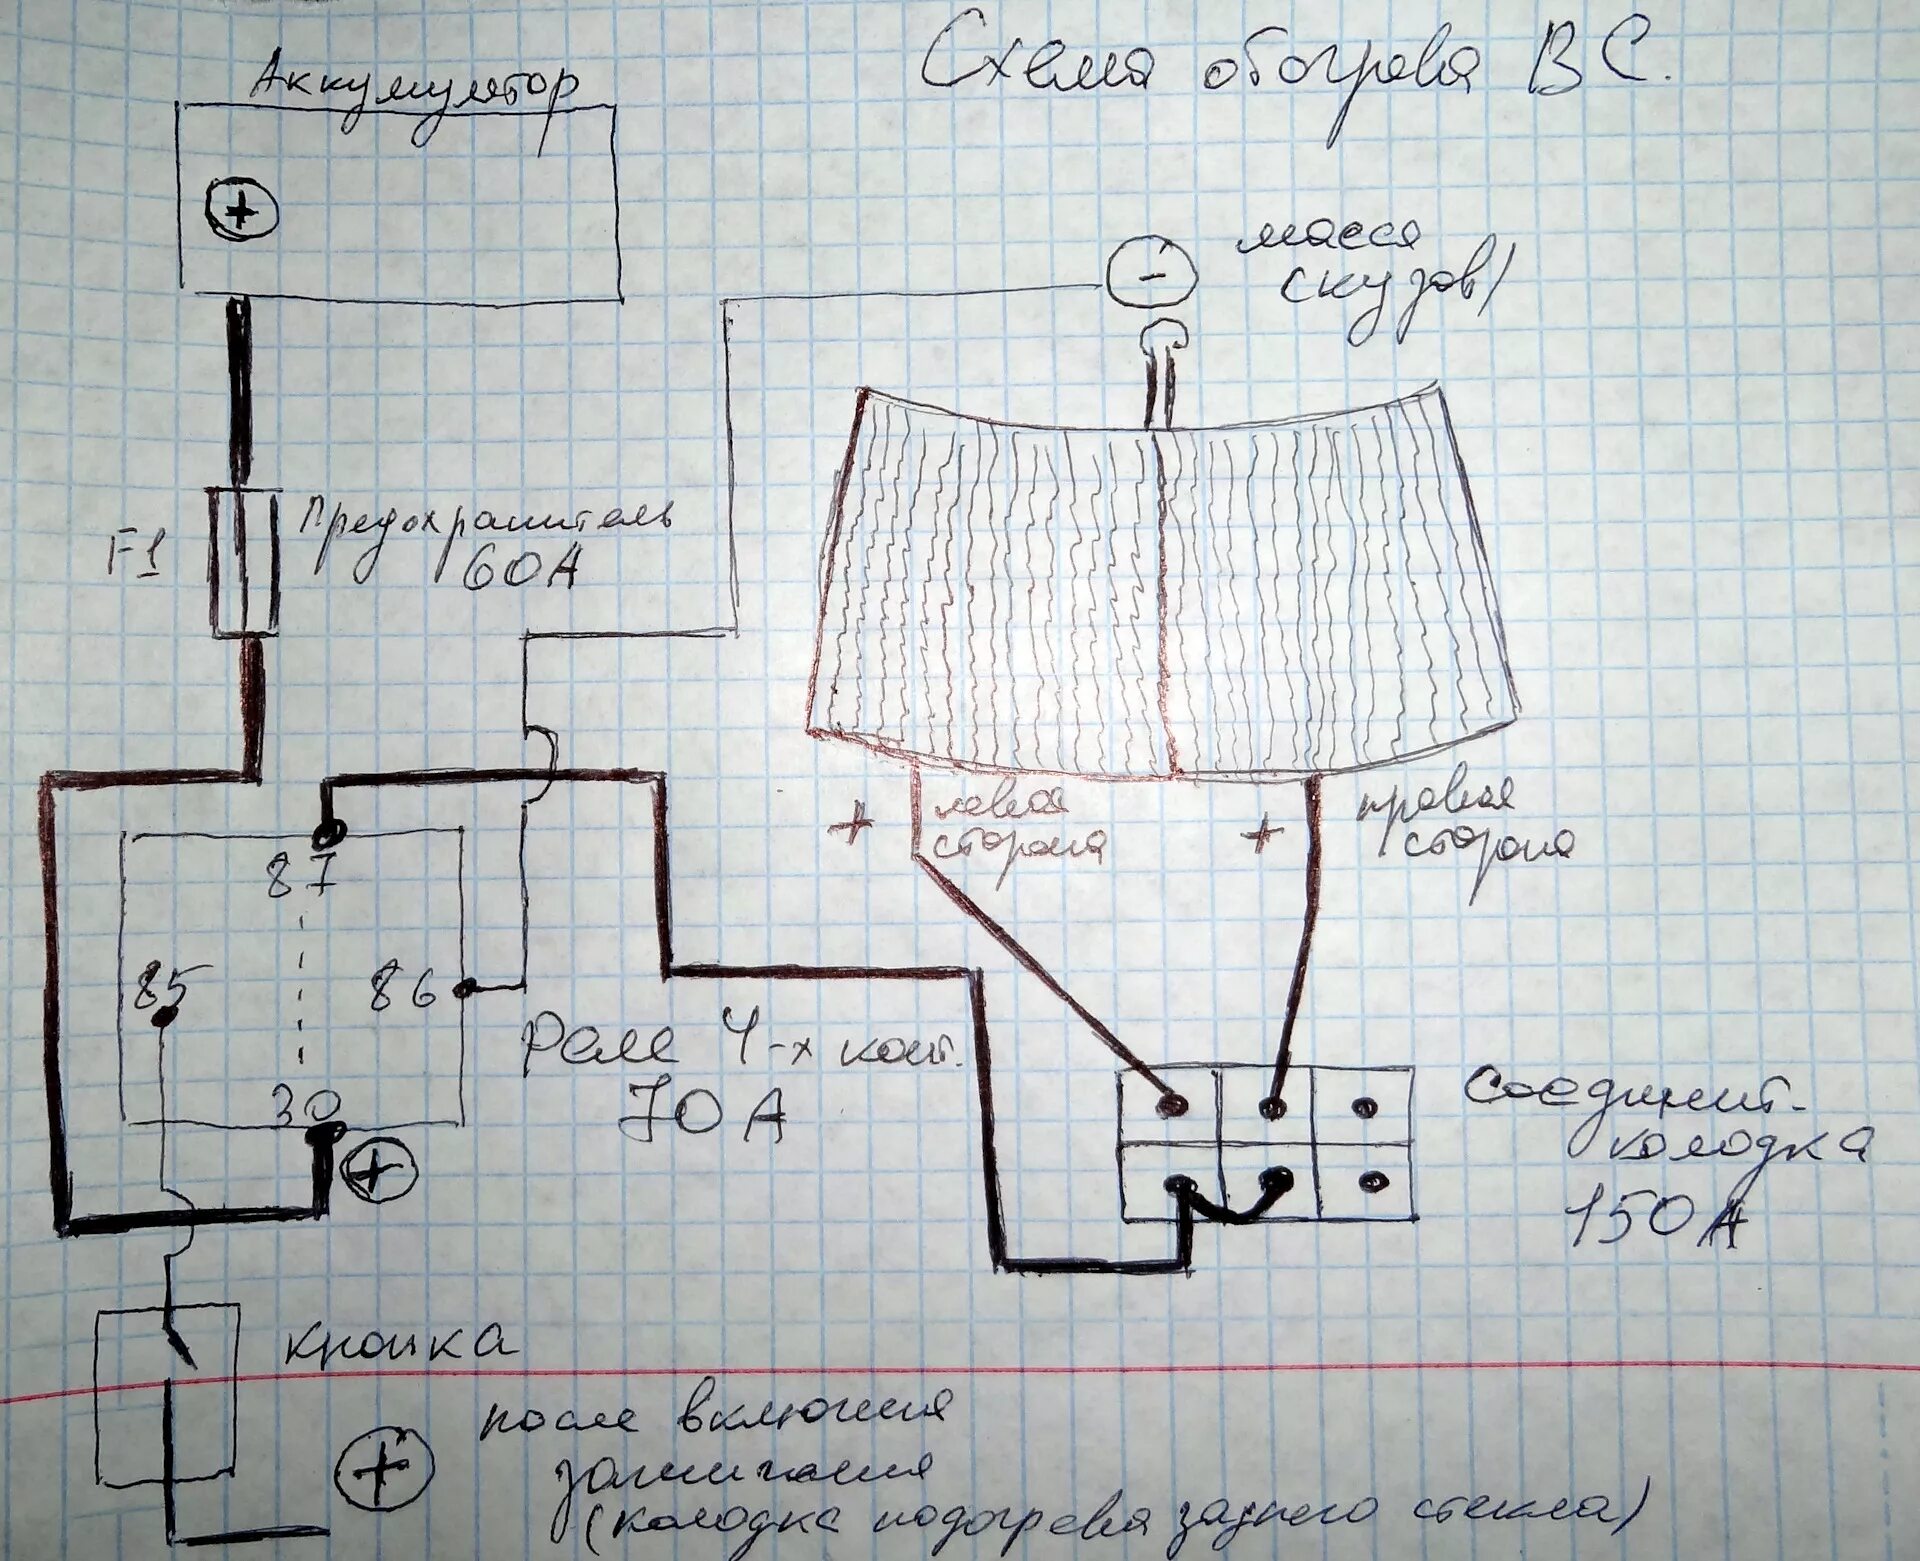 Схема обогрева ВС.
Аккумулятор
+
-
масса
(кузов)
F1
Предохранитель
60А
+
левая
сторона
+
правая
сторона
87
85
86
30
+
Реле 4-х конт.
70А
Соединит.
колодка
150А
кнопка
+
после включения
зажигания
(колодка подогрева заднего стекла)